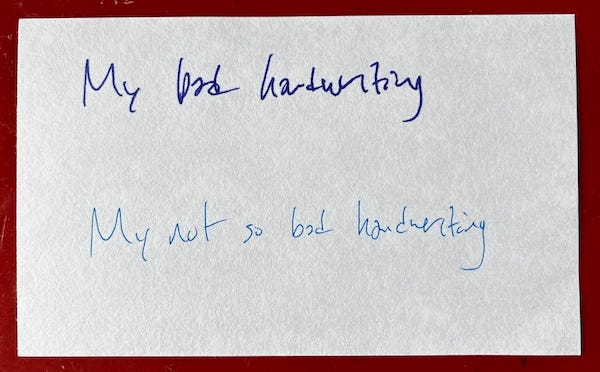 My bad handwriting
My not so bad handwriting